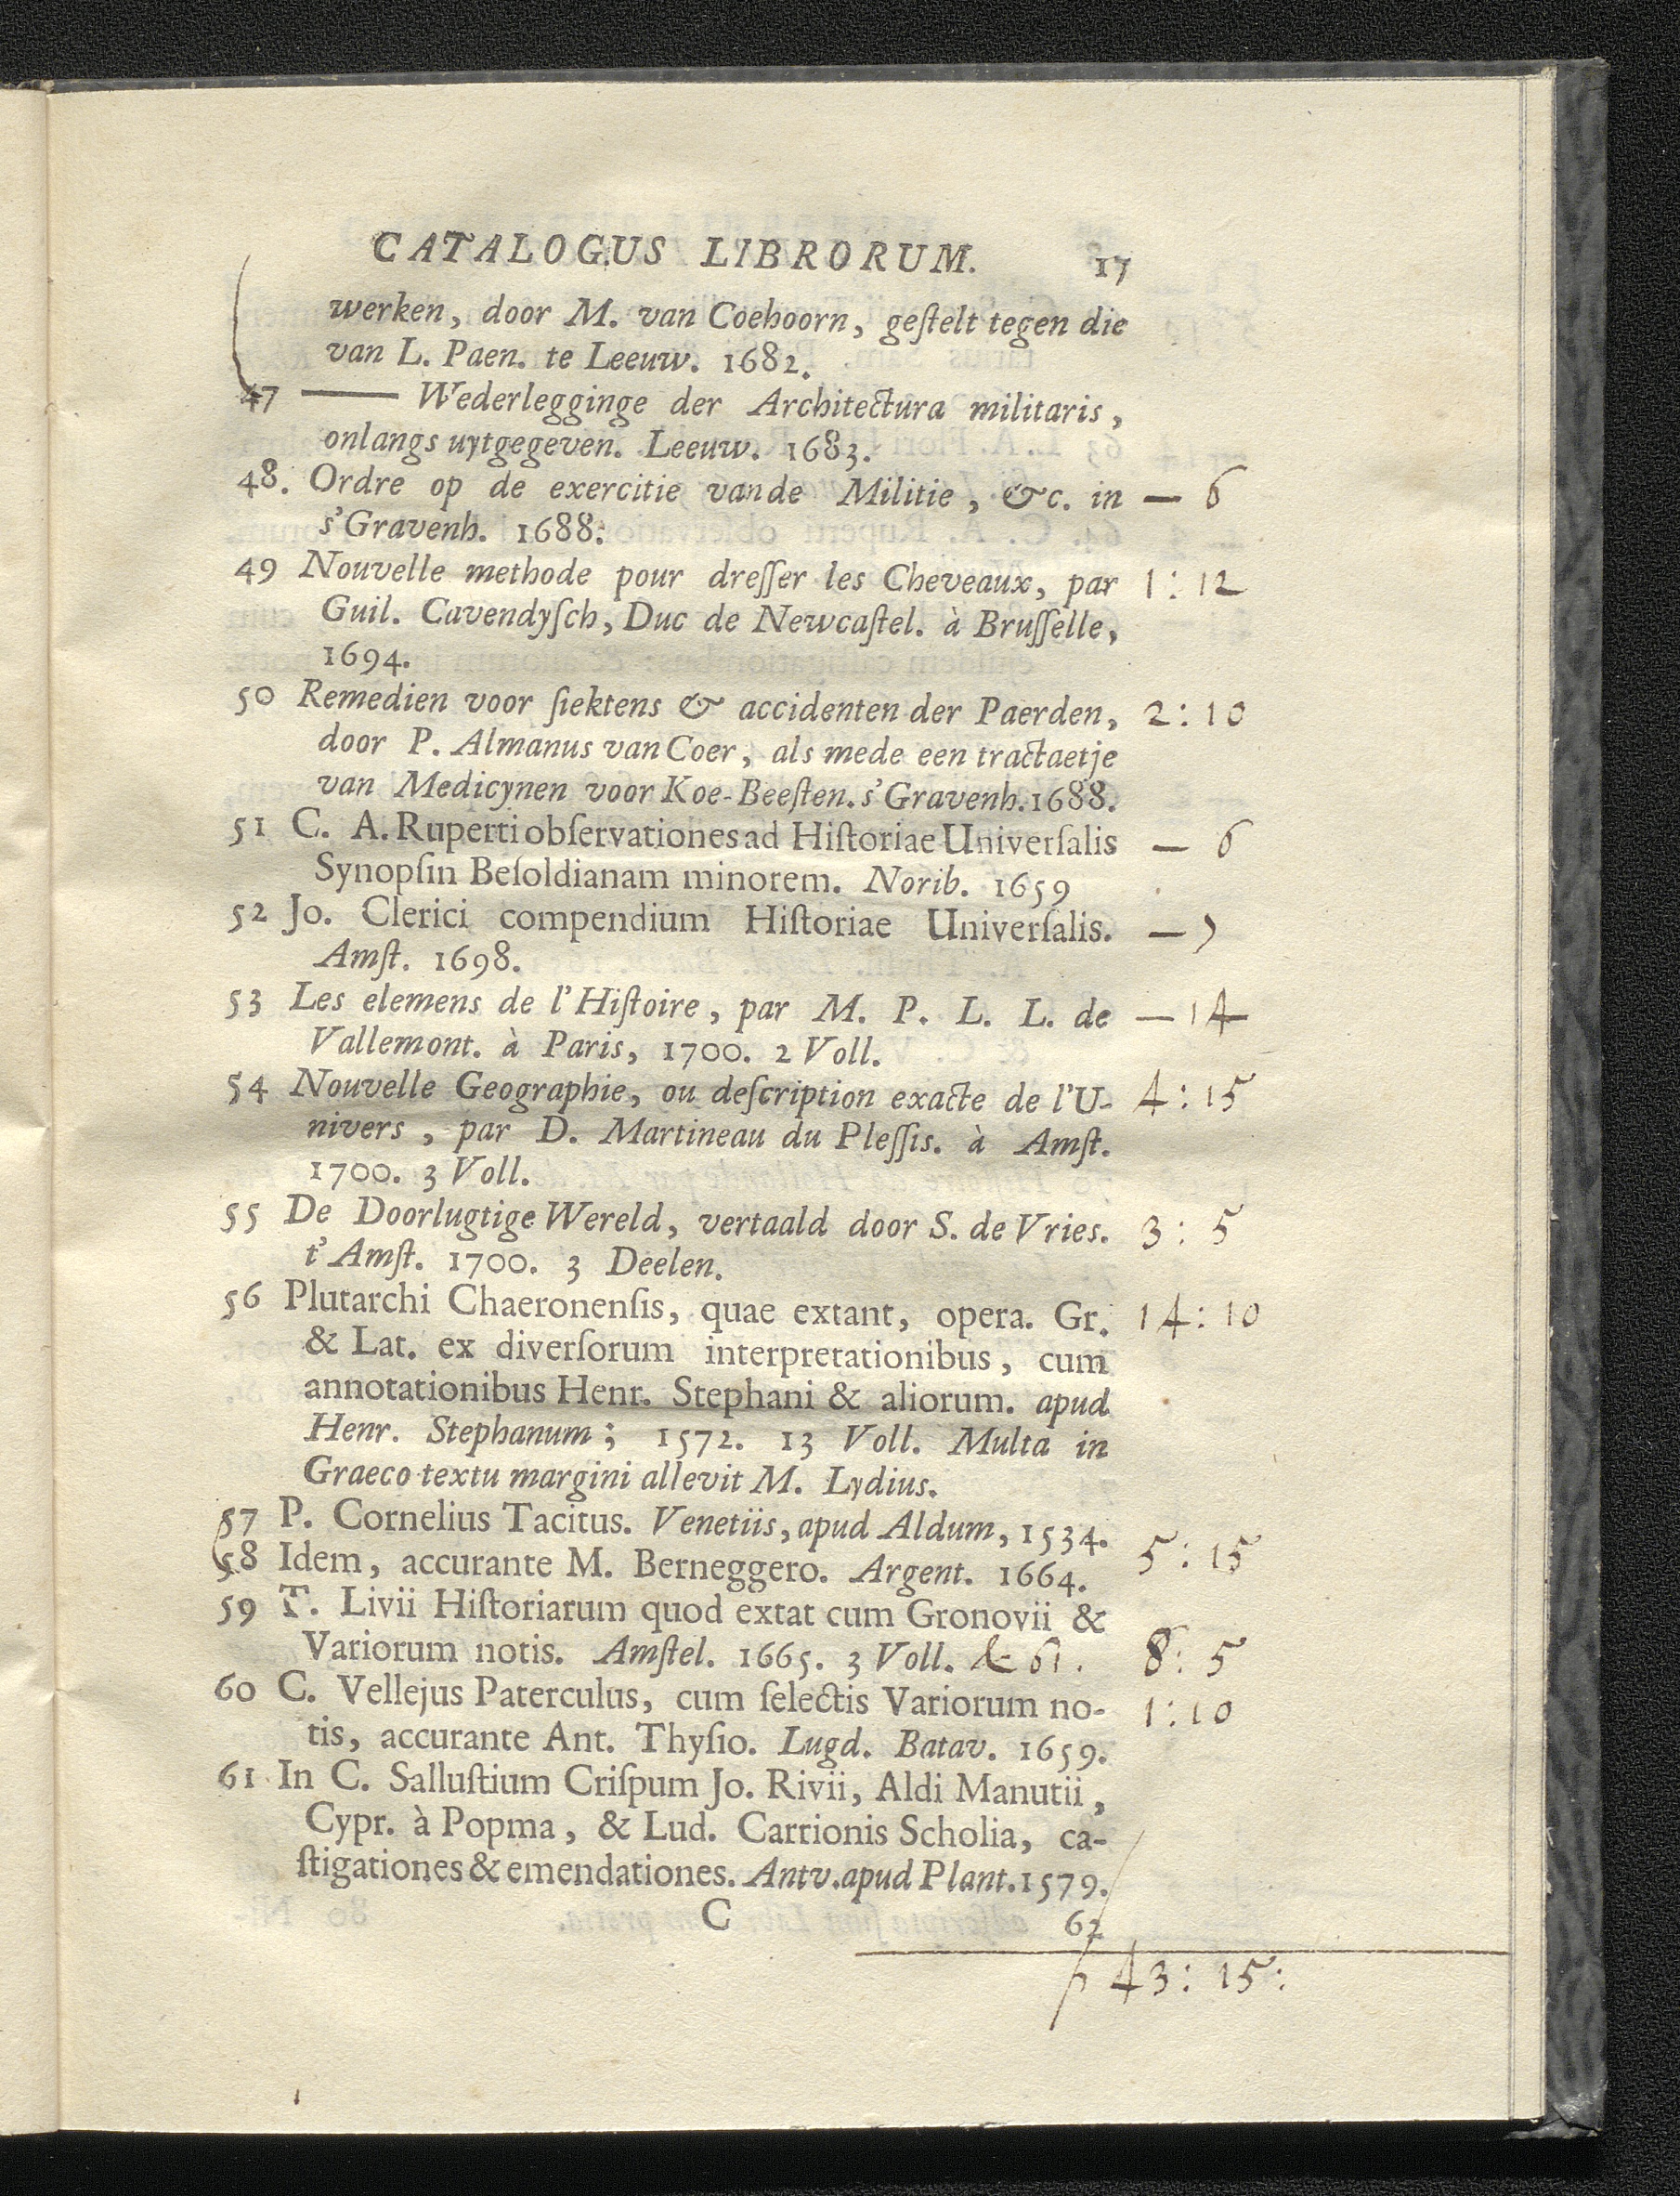 CATALOGUS LIBRORUM. 17
werken, door M. van Coehoorn, geſtelt tegen die
van L. Paen. te Leeuw. 1682.
47 —— Wederlegginge der Architectura militaris,
onlangs uytgegeven. Leeuw. 1683.
48. Ordre op de exercitie vande Militie, &c. in — 6
s'Gravenh. 1688.
49 Nouvelle methode pour dreſſer les Cheveaux, par 1 : 12
Guil. Cavendyſch, Duc de Newcaſtel. à Bruſſelle,
1694.
50 Remedien voor ſiektens & accidenten der Paerden, 2 : 10
door P. Almanus van Coer, als mede een tractaetje
van Medicynen voor Koe-Beeſten. s'Gravenh. 1688.
51 C. A. Ruperti obſervationes ad Hiſtoriae Univerſalis — 6
Synopſin Beſoldianam minorem. Norib. 1659
52 Jo. Clerici compendium Hiſtoriae Univerſalis. — 7
Amſt. 1698.
53 Les elemens de l'Hiſtoire, par M. P. L. L. de — 14
Vallemont. à Paris, 1700. 2 Voll.
54 Nouvelle Geographie, ou deſcription exacte de l'U- 4 : 15
nivers, par D. Martineau du Pleſſis. à Amſt.
1700. 3 Voll.
55 De Doorlugtige Wereld, vertaald door S. de Vries. 3 : 5
t' Amſt. 1700. 3 Deelen.
56 Plutarchi Chaeronenſis, quae extant, opera. Gr. 14 : 10
& Lat. ex diverſorum interpretationibus, cum
annotationibus Henr. Stephani & aliorum. apud
Henr. Stephanum; 1572. 13 Voll. Multa in
Graeco textu margini allevit M. Lydius.
57 P. Cornelius Tacitus. Venetiis, apud Aldum, 1534.
58 Idem, accurante M. Berneggero. Argent. 1664. 5 : 15
59 T. Livii Hiſtoriarum quod extat cum Gronovii &
Variorum notis. Amſtel. 1665. 3 Voll. & 61. 8 : 5
60 C. Vellejus Paterculus, cum ſelectis Variorum no- 1 : 10
tis, accurante Ant. Thyſio. Lugd. Batav. 1659.
61 In C. Salluſtium Criſpum Jo. Rivii, Aldi Manutii,
Cypr. à Popma, & Lud. Carrionis Scholia, ca-
ſtigationes & emendationes. Antv. apud Plant. 1579.
C 62
ƒ 43 : 15 :